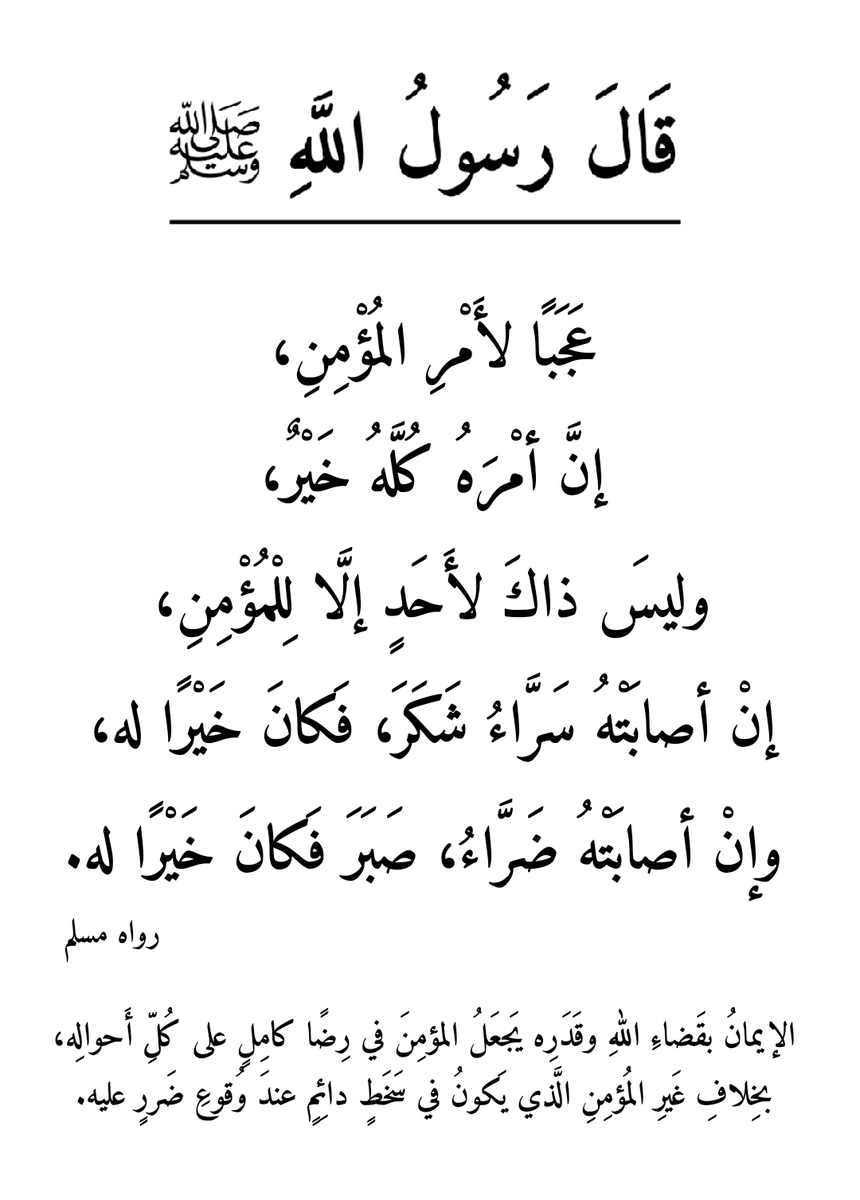 قَالَ رَسُولُ اللَّهِ ﷺ
عَجَبًا لأَمْرِ المُؤْمِنِ،
إنَّ أمْرَهُ كُلَّهُ خَيْرٌ،
وليسَ ذاكَ لأَحَدٍ إلَّا لِلْمُؤْمِنِ،
إنْ أصابَتْهُ سَرَّاءُ شَكَرَ، فَكانَ خَيْرًا له،
وإنْ أصابَتْهُ ضَرَّاءُ، صَبَرَ فَكانَ خَيْرًا له.
رواه مسلم
الإيمانُ بقَضاءِ اللهِ وقَدَرِه يَجعَلُ المؤمِنَ في رِضًا كامِلٍ على كُلِّ أَحوالِه،
بخِلافِ غَيرِ المُؤمِنِ الَّذي يَكونُ في سَخَطٍ دائِمٍ عندَ وُقوعِ ضَررٍ عليه.